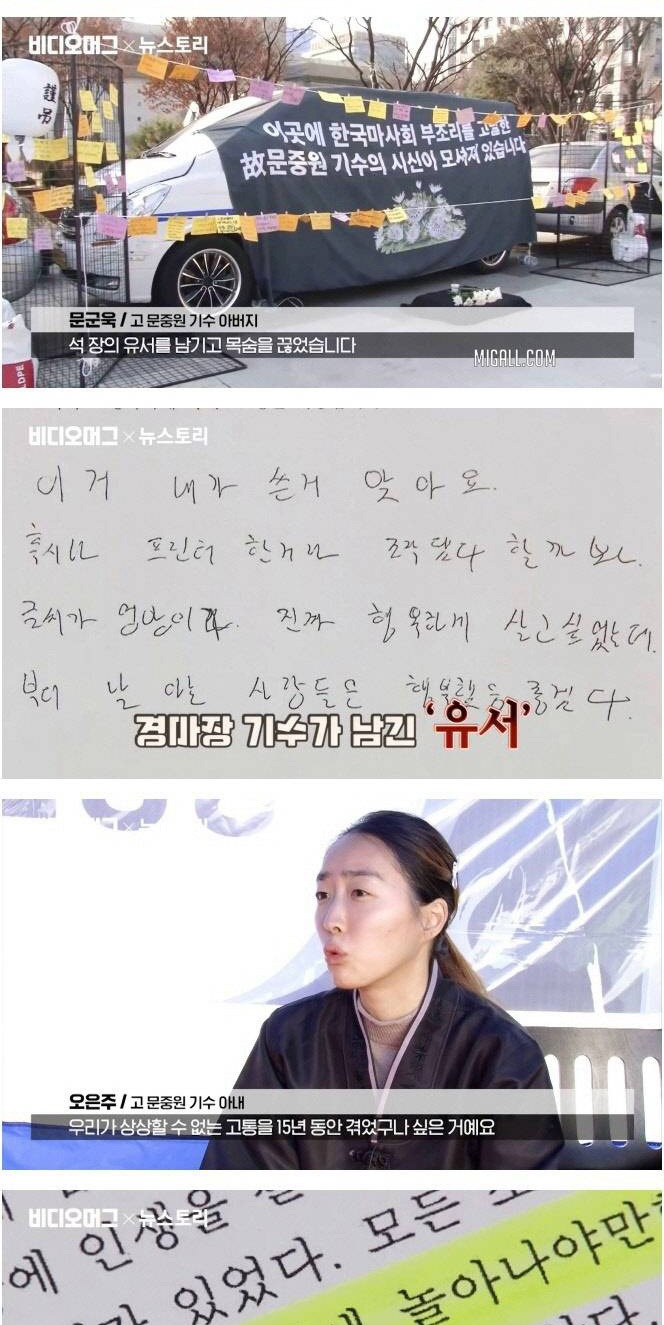 비디오머그×뉴스토리
謹弔
이곳에 한국마사회 부조리를 고발한
故문중원 기수의 시신이 모셔져 있습니다
문군욱 / 고 문중원 기수 아버지
석 장의 유서를 남기고 목숨을 끊었습니다
MIGALL.COM
비디오머그×뉴스토리
이거 내가 쓴거 맞아요.
혹시나 프린터 한거라 조작됐다 할까 봐.
글씨가 엉망이다. 진짜 행복하게 살고 싶었는데.
부디 날 아는 사람들은 행복했음 좋겠다.
경마장 기수가 남긴 '유서'
뉴스토리
오은주 / 고 문중원 기수 아내
우리가 상상할 수 없는 고통을 15년 동안 겪었구나 싶은 거예요
비디오머그×뉴스토리
에 인생을
있었다. 모든
놀아나야만